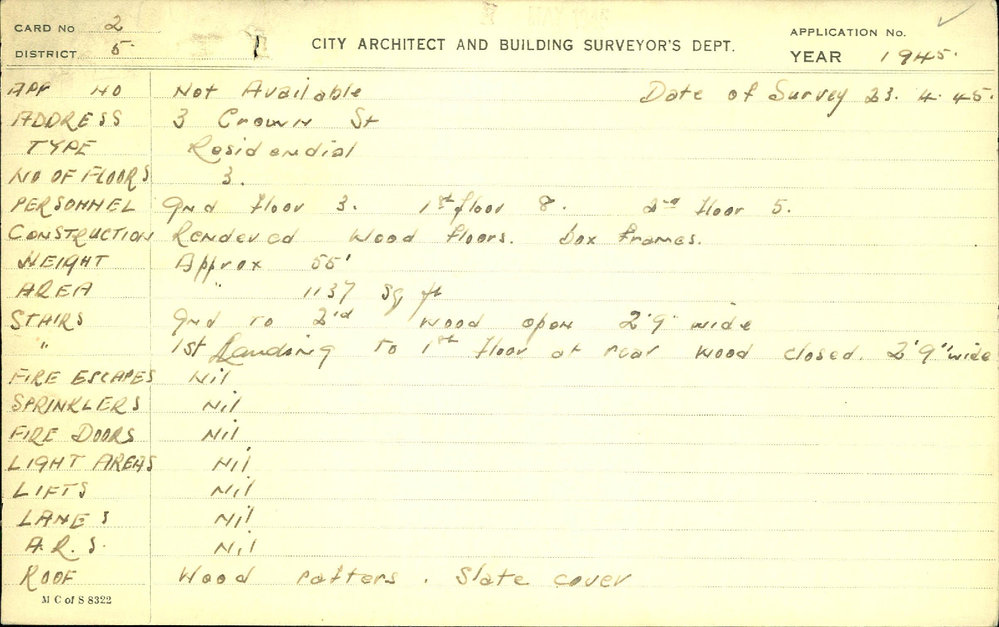 CARD No 2
DISTRICT 5
CITY ARCHITECT AND BUILDING SURVEYOR'S DEPT.
APPLICATION No.
YEAR 1945.
APP NO Not Available Date of Survey 23. 4. 45.
ADDRESS 3 Crown St
TYPE Residendial
NO OF FLOORS 3.
PERSONNEL Gnd floor 3. 1st floor 8. 2nd floor 5.
CONSTRUCTION Rendered Wood floors. box frames.
HEIGHT Approx 55'
AREA " 1137 sq ft
STAIRS Gnd to 2'd wood open 2'9" wide
" 1st Landing to 1st floor at rear wood closed. 2'9" wide
FIRE ESCAPES Nil
SPRINKLERS Nil
FIRE DOORS Nil
LIGHT AREAS Nil
LIFTS Nil
LANES Nil
A.R.S. Nil
ROOF Wood rafters. Slate cover
M C of S 8322